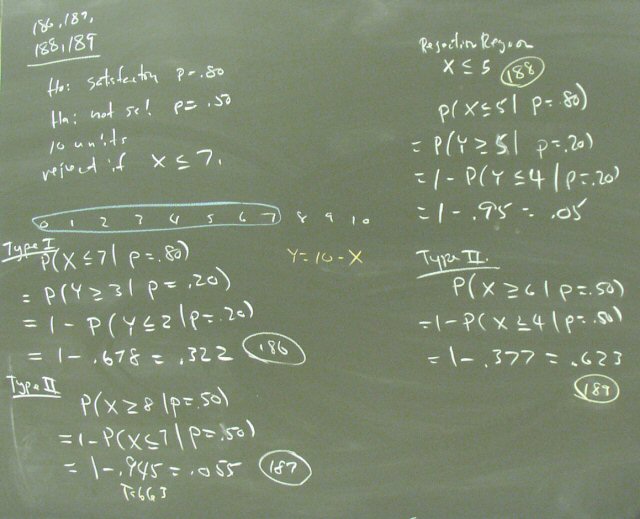 186, 187,
188, 189
Ho: satisfactory p=.80
Ha: not se! p=.50
10 units
reject if X ≤ 7.
0 1 2 3 4 5 6 7 8 9 10
Type I
P(X≤7 | p=.80)
= P(Y≥3 | p=.20)
= 1 - P(Y≤2 | p=.20)
= 1 - .678 = .322 (186)
Type II
P(X≥8 | p=.50)
= 1 - P(X≤7 | p=.50)
= 1 - .945 = .055 (187)
Y=10-X
Rejection Region
X ≤ 5 (188)
P(X≤5 | p=.80)
= P(Y≥5 | p=.20)
= 1 - P(Y≤4 | p=.20)
= 1 - .95 = .05
Type II.
P(X≥6 | p=.50)
= 1 - P(X≤4 | p=.50)
= 1 - .377 = .623
(189)